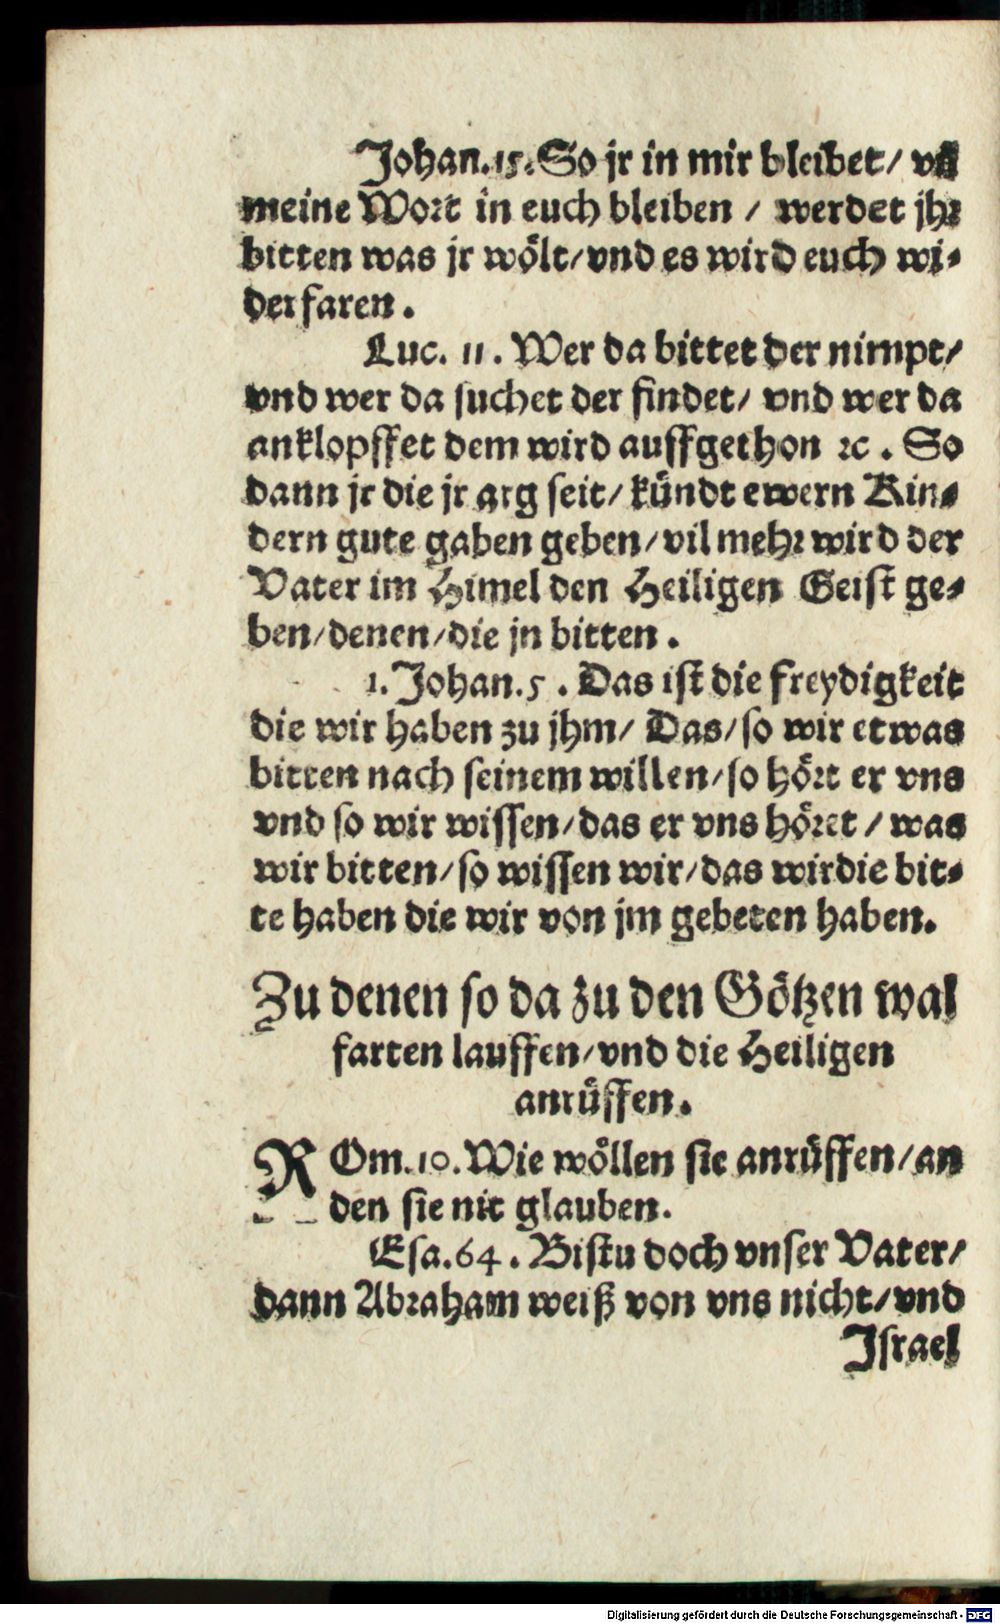 Johan. 15. So jr in mir bleibet/ vñ
meine Wort in euch bleiben / werdet jhr
bitten was jr wölt/ vnd es wird euch wi-
derfaren.
Luc. 11. Wer da bittet der nimpt/
vnd wer da suchet der findet/ vnd wer da
anklopffet dem wird auffgethon ꝛc. So
dann jr die jr arg seit/ kündt ewern Kin-
dern gute gaben geben/ vil mehr wird der
Vater im Himel den Heiligen Geist ge-
ben/ denen/ die jn bitten.
1. Johan. 5. Das ist die freydigkeit
die wir haben zu jhm/ Das/ so wir etwas
bitten nach seinem willen/ so hört er vns
vnd so wir wissen/ das er vns höret / was
wir bitten/ so wissen wir/ das wir die bit-
te haben die wir von jm gebeten haben.
Zu denen so da zu den Götzen wal
farten lauffen/ vnd die Heiligen
anrüffen.
ROm. 10. Wie wöllen sie anrüffen/ an
den sie nit glauben.
Esa. 64. Bistu doch vnser Vater/
dann Abraham weiß von vns nicht/ vnd
Israel
Digitalisierung gefördert durch die Deutsche Forschungsgemeinschaft - DFG